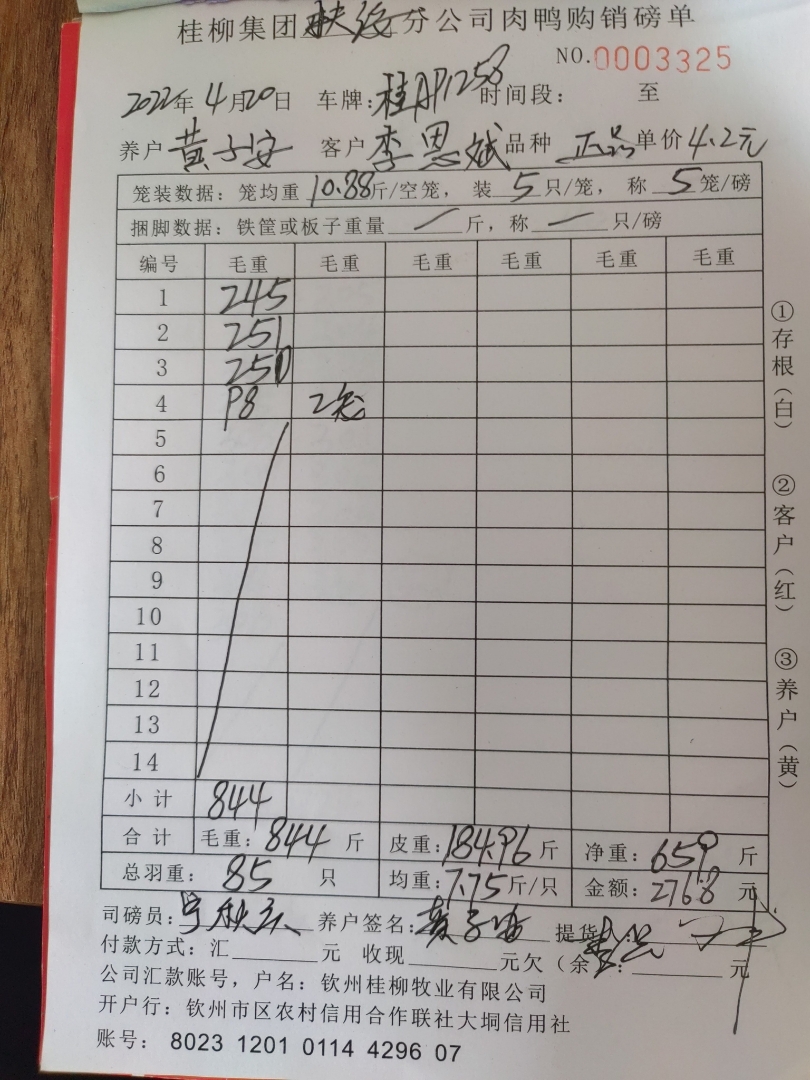 桂柳集团扶绥分公司肉鸭购销磅单
NO.0003325
2022年4月20日 车牌:桂AP1258 时间段: 至
养户 黄子安 客户 李恩斌 品种 正品 单价 4.2元
笼装数据: 笼均重 10.88斤/空笼, 装 5 只/笼, 称 5 笼/磅
捆脚数据: 铁筐或板子重量 / 斤, 称 / 只/磅
编号 毛重 毛重 毛重 毛重 毛重 毛重
1 245
2 251
3 250
4 98 2笼
5
6
7
8
9
10
11
12
13
14
小计 844
合计 毛重: 844 斤 皮重: 184.96 斤 净重: 659 斤
总羽重: 85 只 均重: 7.75斤/只 金额: 2768 元
司磅员: 养户签名: 提货
付款方式: 汇 元 收现 元欠(余 : 元
公司汇款账号, 户名: 钦州桂柳牧业有限公司
开户行: 钦州市区农村信用合作联社大垌信用社
账号: 8023 1201 0114 4296 07
①存根(白)
②客户(红)
③养户(黄)